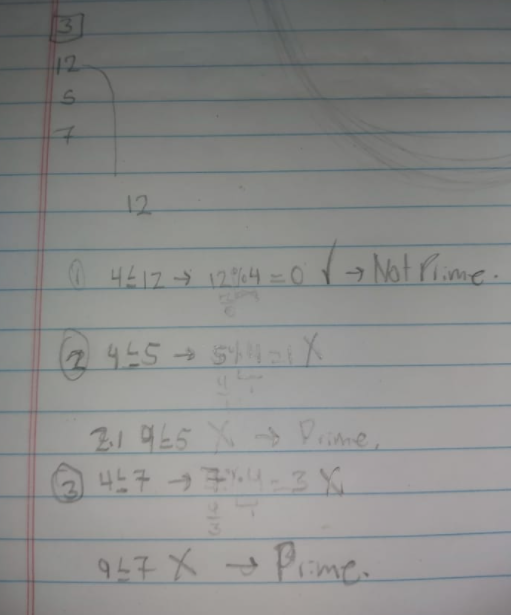 3
12
5
7
12
① 4≤12 → 12%4=0 ✓ → Not Prime.
② 4≤5 → 5%4=1 X
2.1 9≤5 X → Prime.
③ 4≤7 → 7%4=3 X
9≤7 X → Prime.